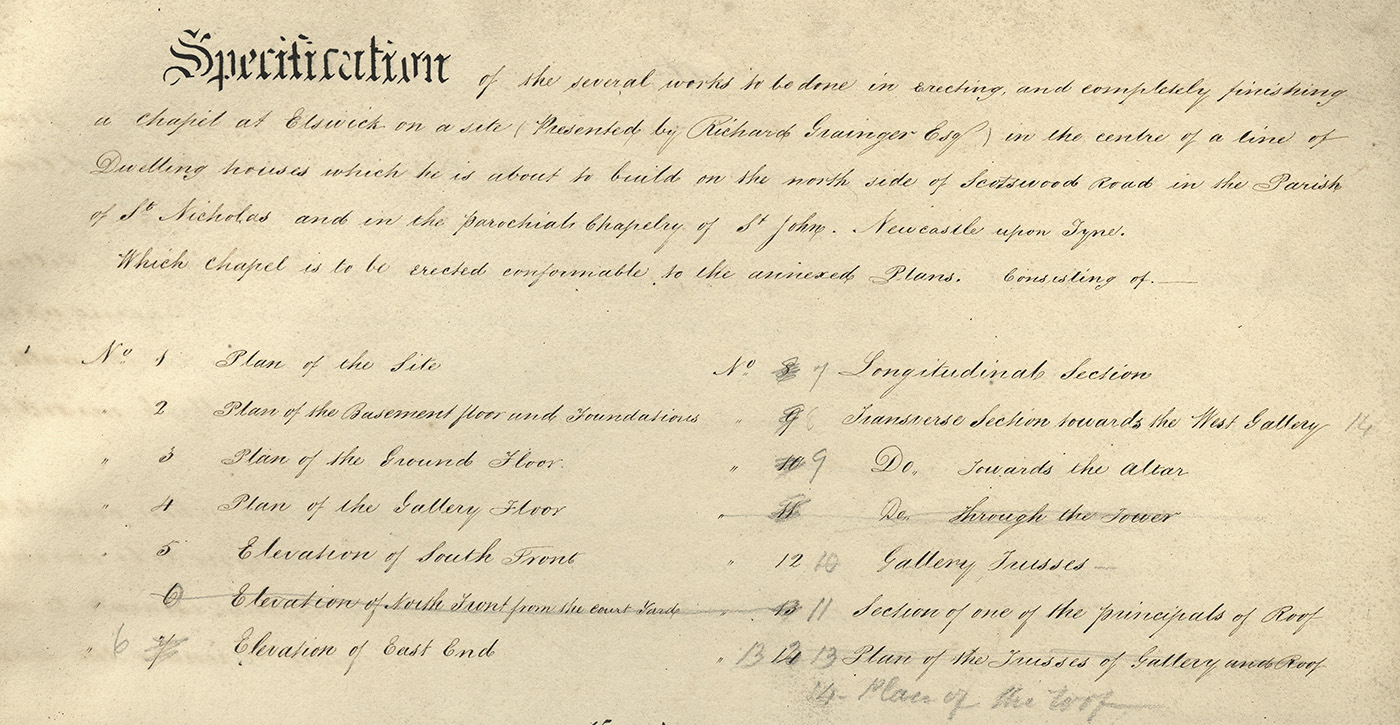 Specification of the several works to be done in erecting, and completely finishing
a chapel at Elswick on a site (Presented by Richard Grainger Esqr) in the centre of a line of
Dwelling houses which he is about to build on the north side of Scotswood Road in the Parish
of St Nicholas and in the parochial Chapelry of St John. Newcastle upon Tyne.
Which chapel is to be erected conformable to the annexed Plans. Consisting of.—
No 1 Plan of the Site
2 Plan of the Basement floor and Foundations
" 3 Plan of the Ground Floor.
" 4 Plan of the Gallery Floor
" 5 Elevation of South Front
" 6 Elevation of North Front from the court Yard
" 6 7 Elevation of East End
No 8 7 Longitudinal Section
" 9 Transverse Section towards the West Gallery 14
" 10 9 Do. Towards the Altar
" 11 Do. Through the Tower
" 12 10 Gallery Trusses —
" 13 11 Section of one of the principals of Roof
" 13 13 Plan of the Trusses of Gallery and Roof
14 - Plan of the roof